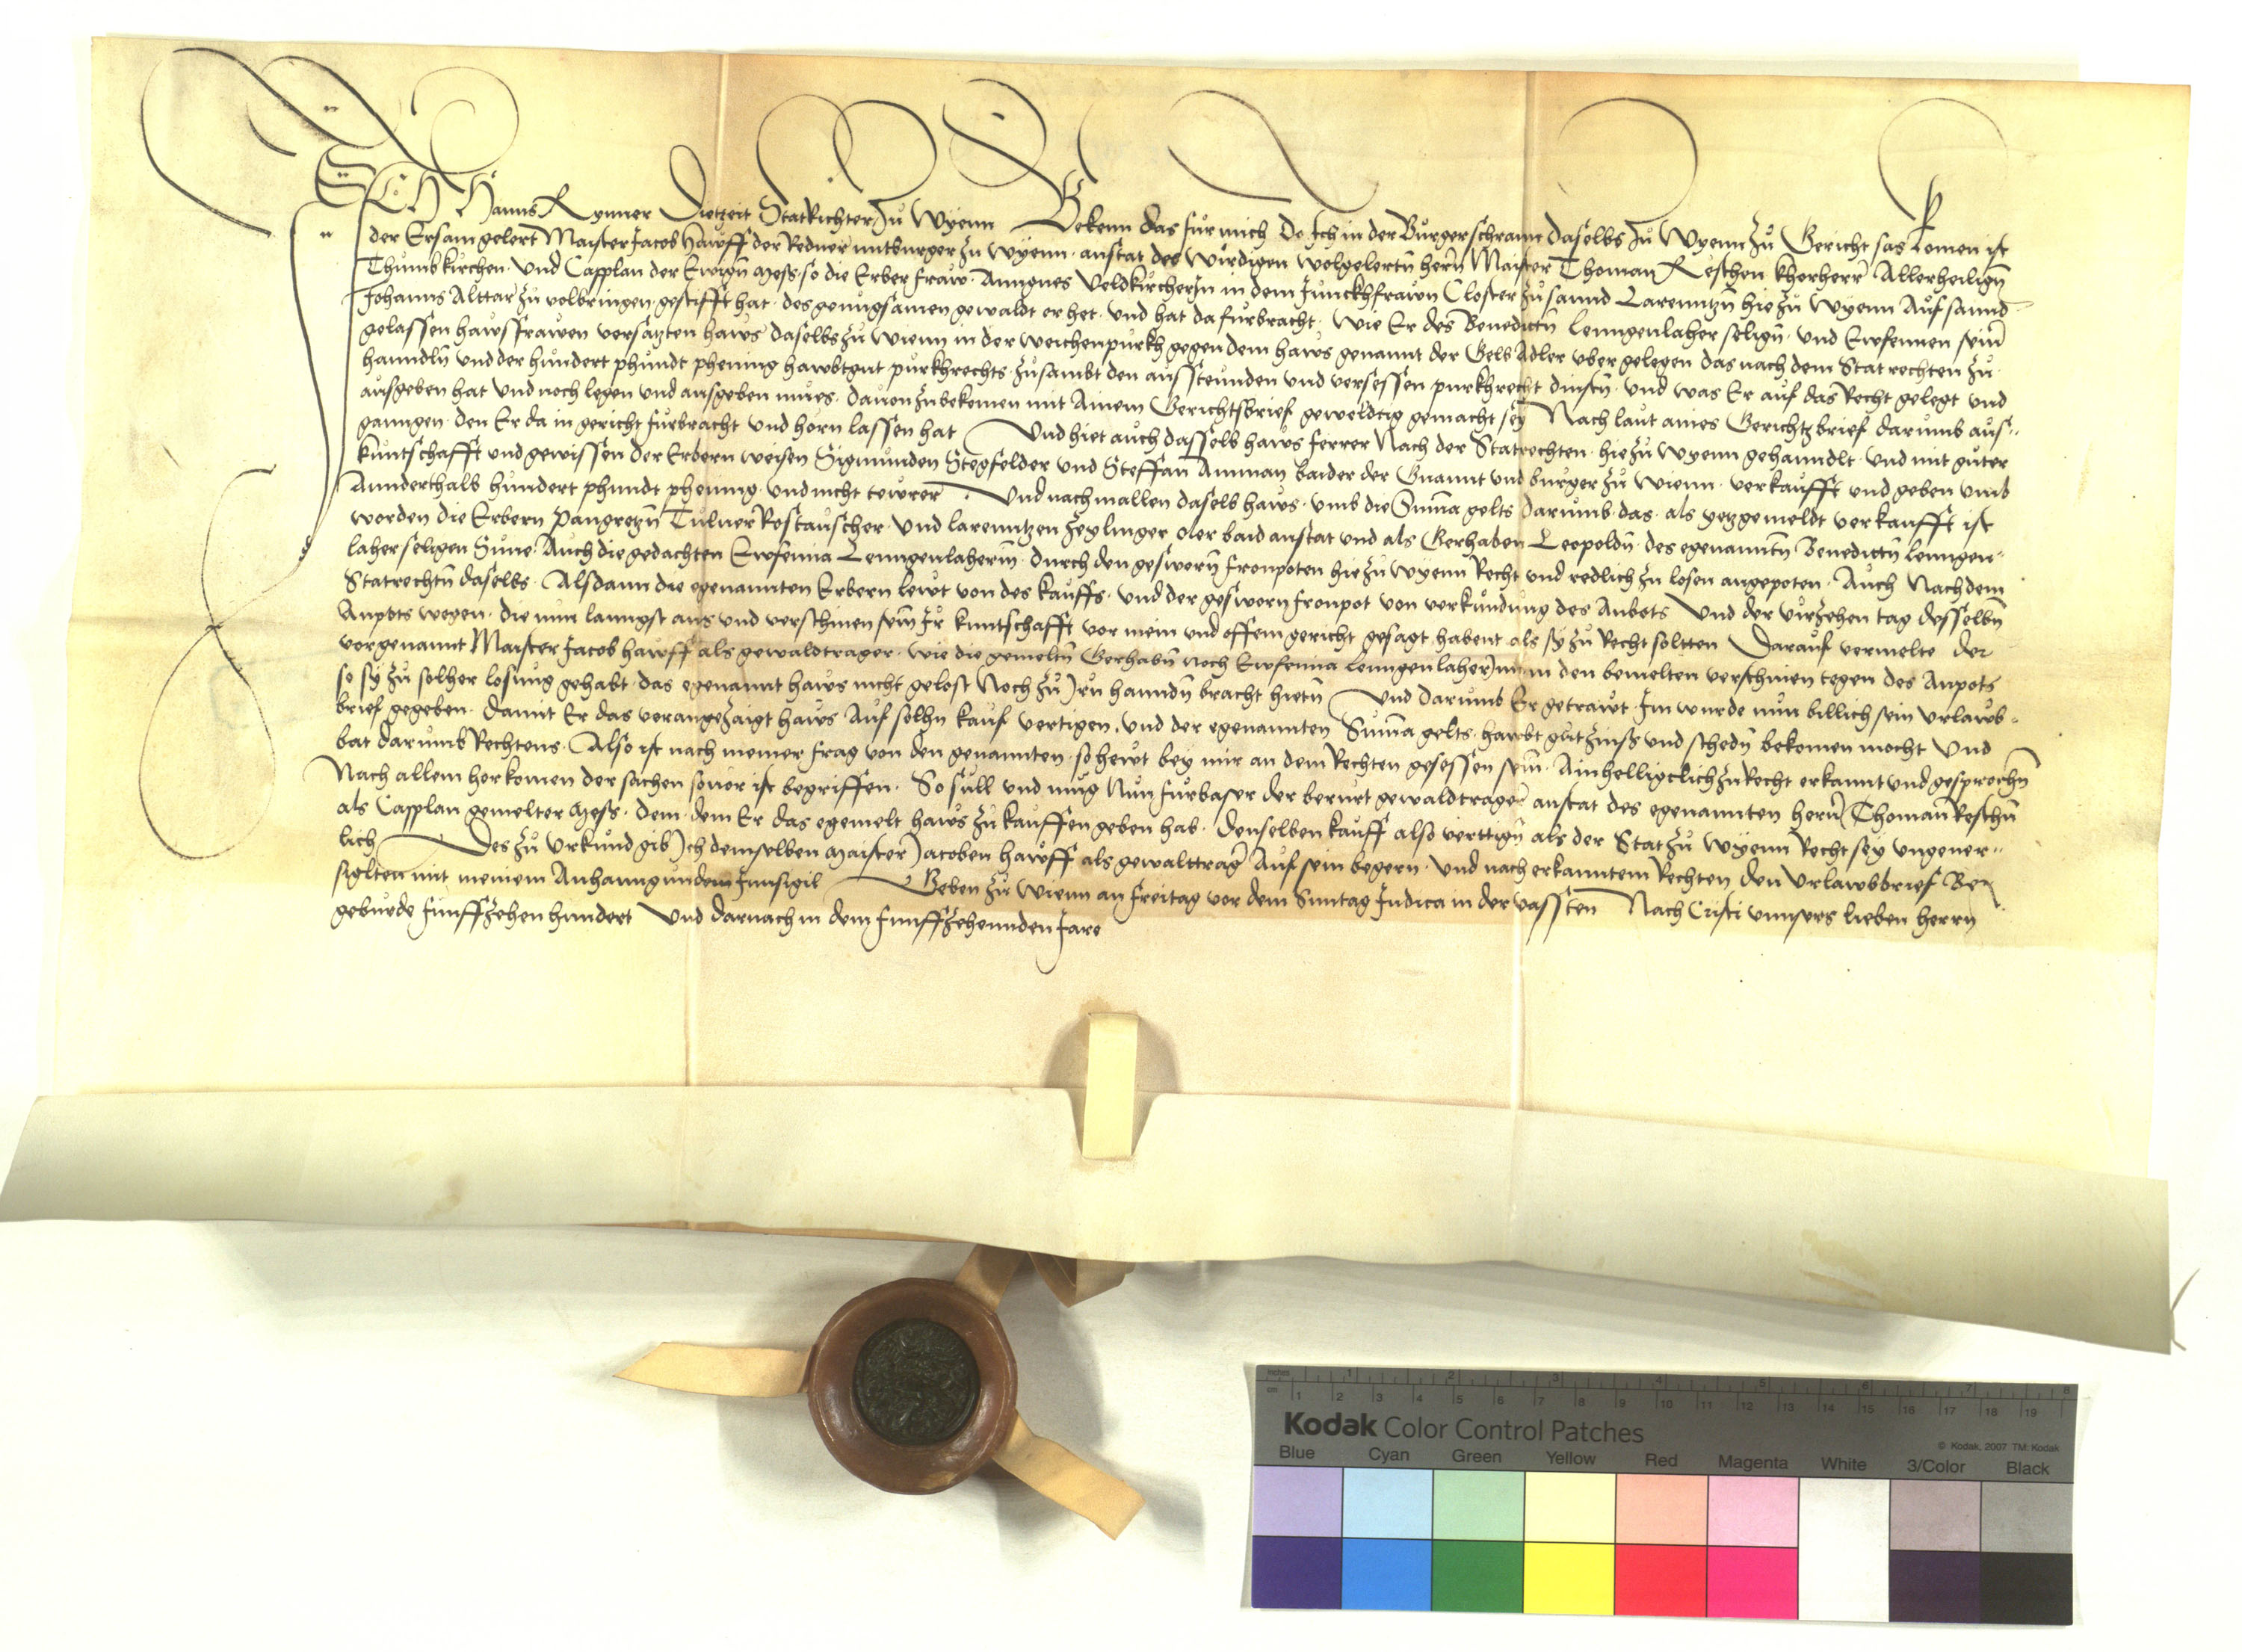 ICH Hanns Rynner Dietzeit StatRichter zů Wyenn Bekenn das fůr mich Do Ich in der Bůrgerschrann daselbs zů Wyenn zů Gericht sas komen ist
der Ersam gelert Maister Jacob Hawff der Redner mitburger zu Wyenn · anstat des wirdigen wolgelertn̄ hern̄ Maister Thoman Reschen khorherr Allerheilign̄
Thumbkirchen · Und Capplan der Ewign̄ Mess · so die Erber fraw · Anngnes Veldkircherin in dem Junckhfrawn Closter zů sannd Larenntzn̄ hie zů Wyenn Auf sannd
Johanns Alttar zů volbringen gestifft hat · des genůgsamen gewaldt er het · und hat da fůrbracht · Wie Er des Benedictn̄ Lenngenlaher selign̄ · und Ewfemien sein̄
gelassen hawsfrawen versatzten haws daselbs zů Wienn in der weichenpurkh gegen dem haws genannt der Gelb Adler uber gelegen das nach dem Stat rechten zů
hanndln̄ und der hůndert phůndt phening hawbtgut půrkhrechts · zůsambt den aussteunden und versessen purkhrecht dinstn̄ · und was Er auf das Recht gelegt und
ausgeben hat und noch legen und ausgeben můes · dauon zubekomen mit Ainem Gerichtsbrief geweldtig gemacht sey Nach laut aines Gerichtzbrief darumb aus-
ganngen · den Er da in gericht fůrbracht und hörn lassen hat Und hiet auch dasselb haws ferrer Nach der Statrechten · hie zů Wyenn gehanndlt · und mit gůter
kůntschafft und gewissen der Erbern weisen Sigmůnden Stegfelder und Steffan Amman baider der Genannt und burger zů Wienn · verkaufft und geben umb
Annderthalb hůndert phundt phening · und nicht tewrer · Und nachmallen daselb haws · umb die Sum̄a gelts darůmb · das · als yetzgemeldt verkaufft ist
worden die Erbern Pangretzn̄ Tulner Rostauscher · und Larenntzen Zeglinger oler baid anstat und als Gerhaben Leopoldn̄ · des egenanntn̄ Benedictn̄ Lenngen-
laher seligen Sune · Auch die gedachten Ewfemia Lenngenlaherin̄ · durch den gesworn̄ fronpoten hie zů Wyenn Recht und redlich zu losen angepoten · Auch Nachdem
Statrechtn̄ daselbs · Alsdann die egenannten Erbern lewt von des kauffs · und der gesworn fronpot von verkůndung des Anbots Und der virzehen tag desselbn̄
Anpots wegen · die nun lanngst aus und verschinen sein̄ Ir kuntschafft vor mein und offem gericht gesagt habent als sy zů Recht soltten Darauf vermelte der
vorgenannt Maister Jacob hawff als gewaldtrager · wie die gemeltn̄ Gerhabn̄ noch Ewfemia Lenngenlaherin in den bemelten verschinen tegen des Anpots
so sy zů solher losung gehabt · das egenannt haws nicht gelost Noch zů Irn̄ hanndn̄ bracht hietn̄ Und darůmb Er getrawt Im wurde nun billich sein Urlawb-
brief gegeben · damit Er das vorangezaigt haws Auf solhn kauf vertigen · und der egenannten Sum̄a gelts · hawbt gůt zinss und schedn̄ bekomen mocht Und
bat darůmb Rechtens · Also ist nach meiner frag von den genannten · so hewt bey mir an dem Rechten gesessen sein̄ · Ainhelligclich zu Recht erkannt und gesprochn̄
Nach allem herkomen der sachen souor ist begriffen · So sůll und můg Nun fůrbaser der berurt gewaldtrager anstat des egenannten hern̄ Thoman̄ Reschn̄
als Capplan gemelter Mess · dem · dem Er das egemelt haws zů kauffen geben hab · denselben kauff also verttign̄ als der Stat zů Wyenn Recht sey ungeuer-
lich Des zů Urkund gib Ich demselben Maister Jacoben hawff als gewalttrager Auf sein begern · und nach erkanntem Rechten den Urlawbbrief Be-
siglten mit meinem Anhanngundem Innsigil Geben zů Wienn an Freitag vor dem Sunntag Judica in der vassten Nach Cristi unnsers lieben herrn
gebůrde fůnffzehen hundert Und darnach in dem funffzehennden Jare
inches 1 2 3 4 5 6 7 8
cm 1 2 3 4 5 6 7 8 9 10 11 12 13 14 15 16 17 18 19
Kodak Color Control Patches
© Kodak, 2007 TM: Kodak
Blue Cyan Green Yellow Red Magenta White 3/Color Black